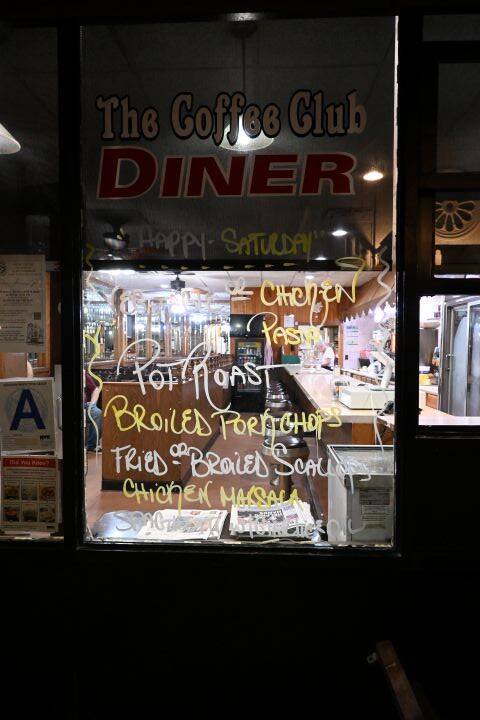 The Coffee Club
DINER
"HAPPY-SATURDAY"
OR CHICKEN
PASTA
POT ROAST
BROILED PORKCHOPS
FRIED OR BROILED SCALLOPS
CHICKEN MARSALA
A
Did You Know?